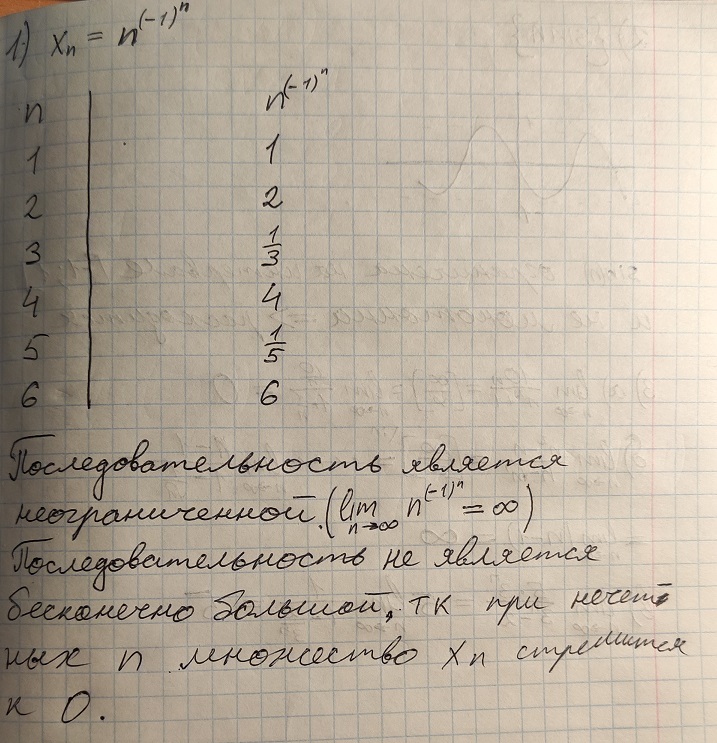 1.) xₙ = n^(-1)^n
n | n^(-1)^n
1 | 1
2 | 2
3 | 1/3
4 | 4
5 | 1/5
6 | 6
Последовательность является
неограниченной. (lim n→∞ n^(-1)^n = ∞)
Последовательность не является
бесконечно большой, тк при нечет
ных n множество xₙ стремится
к 0.